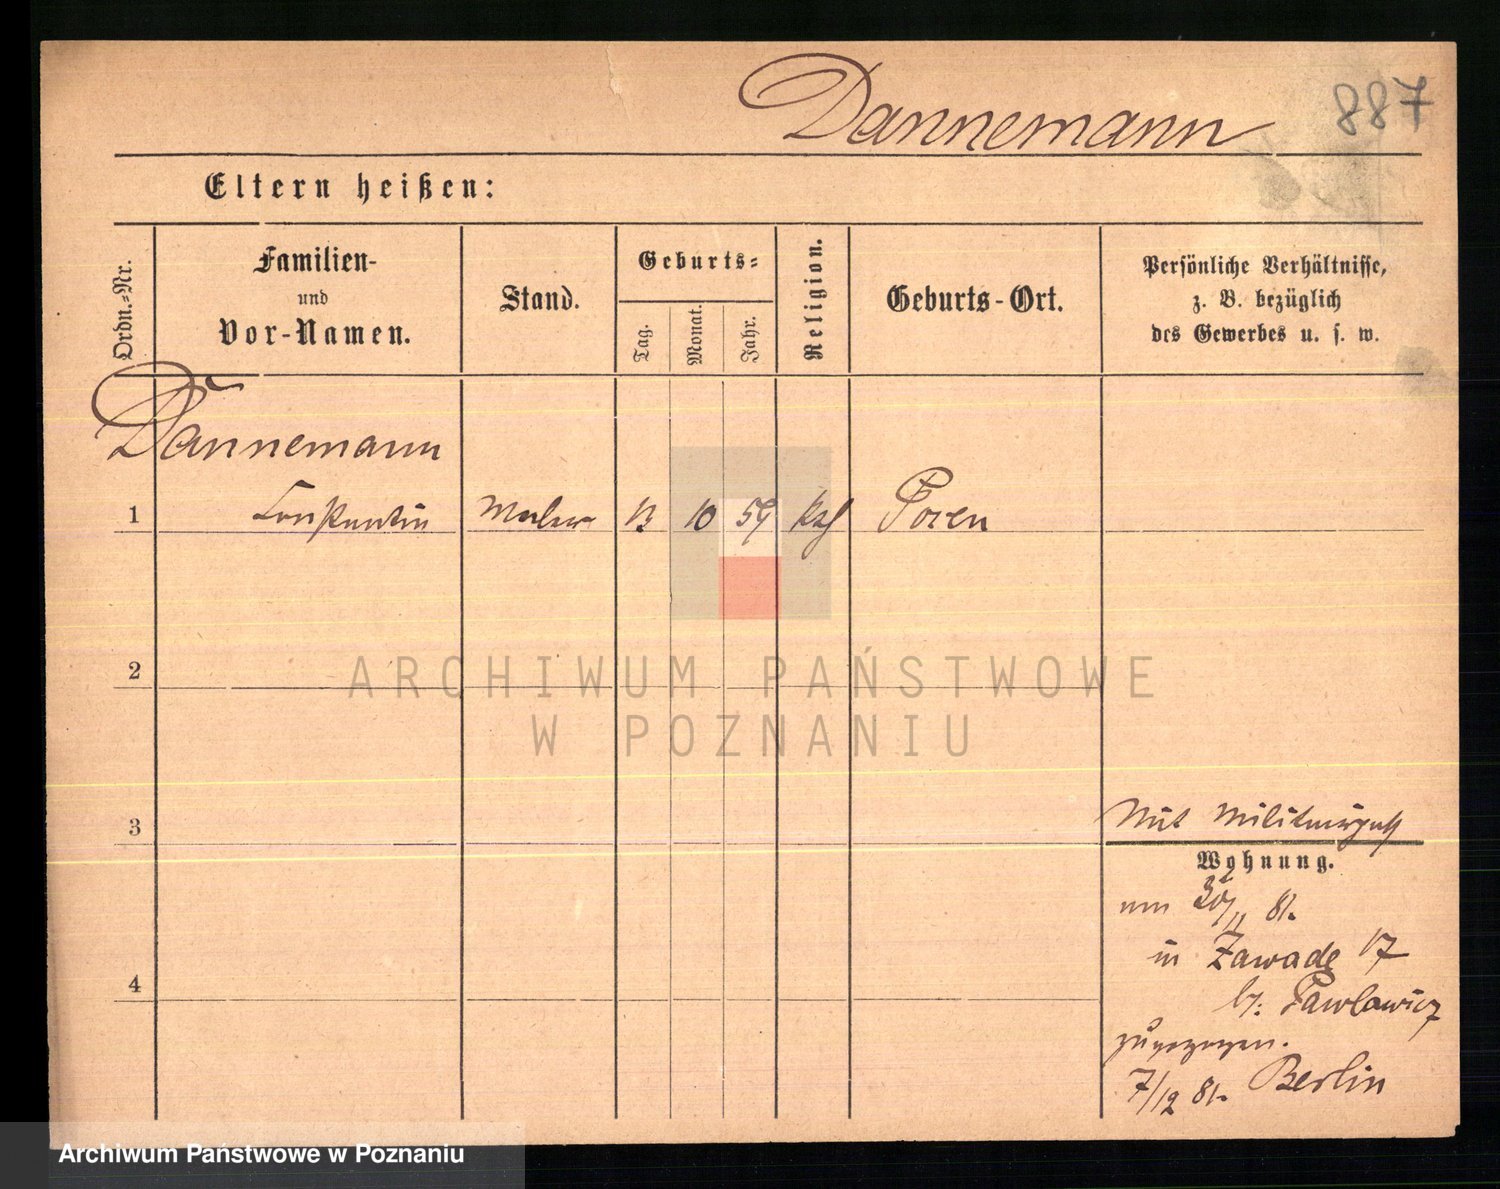 Dannemann
887
Eltern heißen:
Ordn.-Nr.
Familien-
und
Vor-Namen.
Stand.
Geburts-
Tag.
Monat.
Jahr.
Religion.
Geburts-Ort.
Persönliche Verhältnisse,
z. B. bezüglich
des Gewerbes u. s. w.
Dannemann
1 Constantin Maler 13 10 59 kath Posen
2
3
4
Mit Militairpaß
Wohnung.
am 30/11 81.
in Zawade 17
b: Pawlowicz
zugezogen.
7/12 81. Berlin
ARCHIWUM PAŃSTWOWE
W POZNANIU
Archiwum Państwowe w Poznaniu